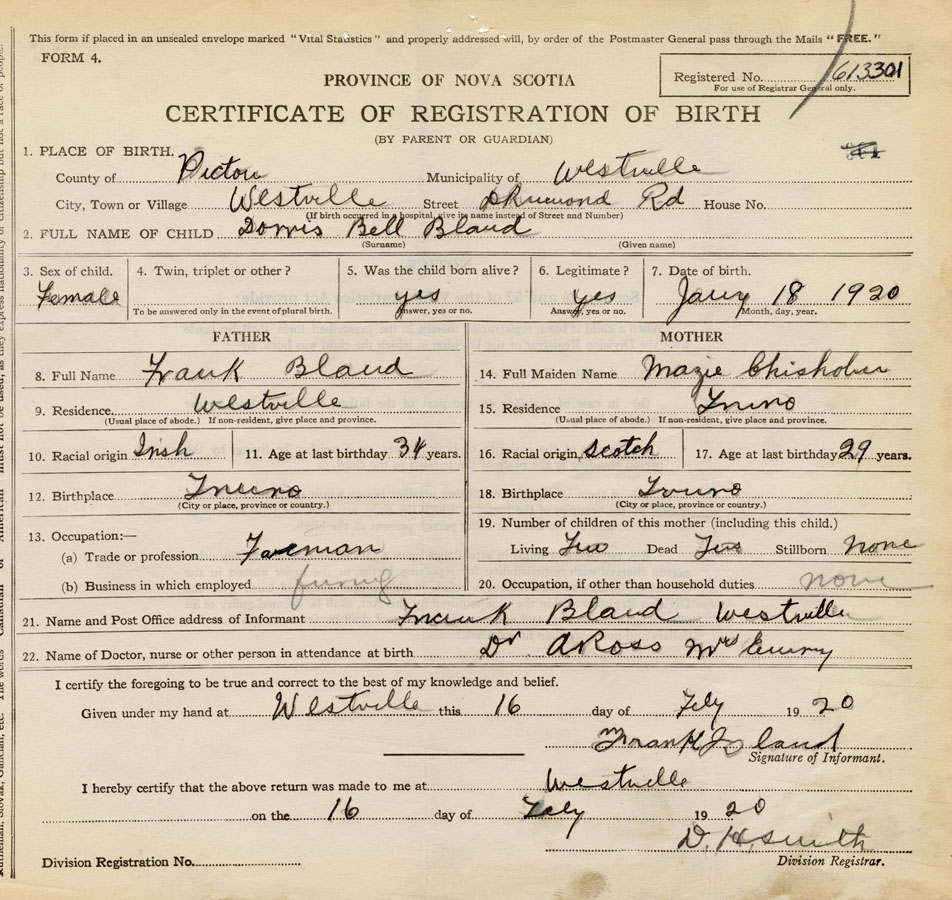 This form if placed in an unsealed envelope marked "Vital Statistics" and properly addressed will, by order of the Postmaster General pass through the Mails "FREE."
FORM 4.
Registered No. 613301
For use of Registrar General only.
PROVINCE OF NOVA SCOTIA
CERTIFICATE OF REGISTRATION OF BIRTH
(BY PARENT OR GUARDIAN)
1. PLACE OF BIRTH.
County of Pictou Municipality of Westville
City, Town or Village Westville Street Drumond Rd House No.
(If birth occurred in a hospital, give its name instead of Street and Number)
2. FULL NAME OF CHILD Dorris Bell Bland
(Surname) (Given name)
3. Sex of child. 4. Twin, triplet or other? 5. Was the child born alive? 6. Legitimate? 7. Date of birth.
Female yes yes Jany 18 1920
To be answered only in the event of plural birth. Answer, yes or no. Answer, yes or no. Month, day, year.
FATHER MOTHER
8. Full Name Frank Bland 14. Full Maiden Name Mazie Chisholm
9. Residence. Westville 15. Residence Truro
(Usual place of abode.) If non-resident, give place and province. (Usual place of abode.) If non-resident, give place and province.
10. Racial origin Irish 11. Age at last birthday 34 years. 16. Racial origin, Scotch 17. Age at last birthday 29 years.
12. Birthplace Truro 18. Birthplace Truro
(City or place, province or country.) (City or place, province or country.)
19. Number of children of this mother (including this child.)
13. Occupation:—
(a) Trade or profession Foreman Living Two Dead Two Stillborn none
(b) Business in which employed 20. Occupation, if other than household duties none
21. Name and Post Office address of Informant Frank Bland Westville
22. Name of Doctor, nurse or other person in attendance at birth Dr A Ross
I certify the foregoing to be true and correct to the best of my knowledge and belief.
Given under my hand at Westville this 16 day of Feby 1920
Frank Bland
Signature of Informant.
I hereby certify that the above return was made to me at Westville
on the 16 day of Feby 1920
D. H. Smith
Division Registration No. Division Registrar.